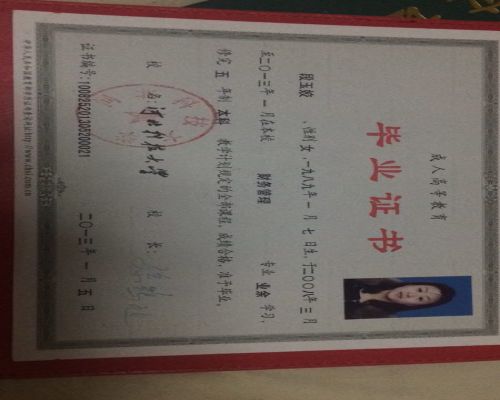 成人高等教育
毕业证书
段玉姣 、性别 女 ,一九八九年 一 月 七 日生,于二〇〇八年 三 月
至二〇一三年 一 月在本校 财务管理 专业 业余 学习,
修完 五 年制 本科 教学计划规定的全部课程,成绩合格,准予毕业。
校 名:河北科技大学 校 长:
证书编号:100825201305200021 二〇一三年 一 月 五 日